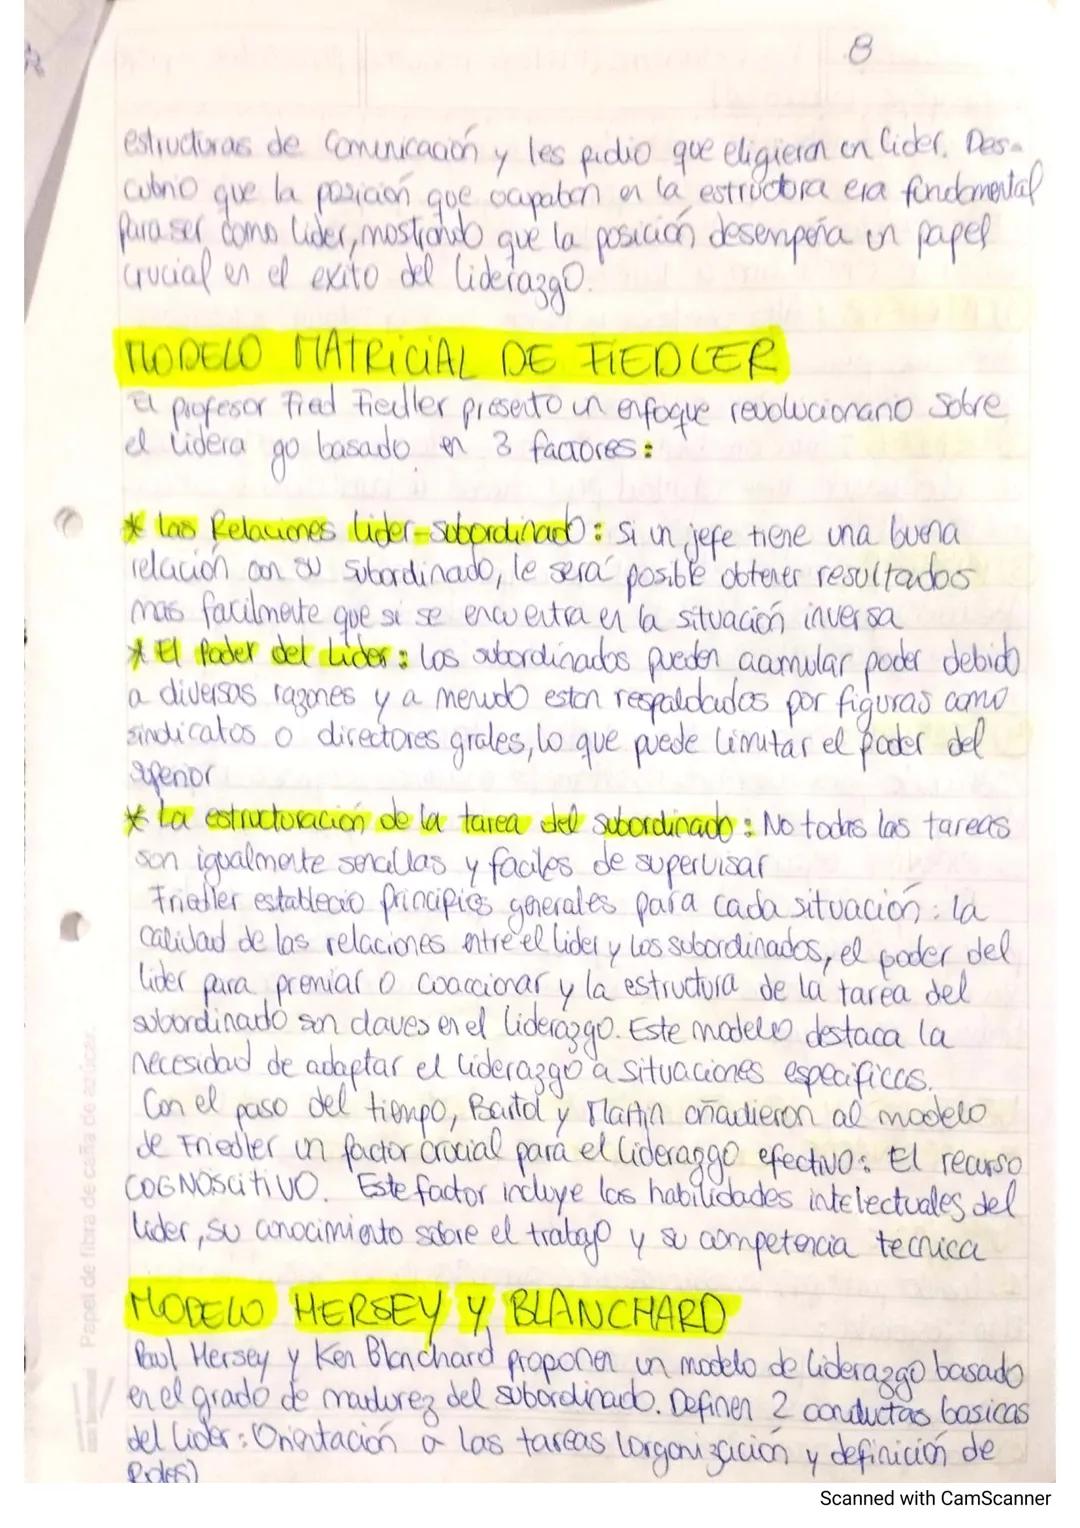 8
estructuras de Comunicación y les pidio que eligieran un lider. Des-
cubrio que la posición que ocupaban en la estructura era fundamental
para ser como lider, mostrando que la posición desempeña un papel
crucial en el exito del liderazgo.
MODELO MATRICIAL DE FIEDLER
El profesor Fred Fiedler presento un enfoque revolucionario sobre
el lidera go basado en 3 factores:
* Las Relaciones lider-subordinado: Si un jefe tiene una buena
relación con su subordinado, le será posible obtener resultados
mas facilmente que si se encuentra en la situación inversa
* El Poder del Lider: Los subordinados pueden acumular poder debido
a diversas razones y a menudo estan respaldados por figuras como
sindicatos o directores grales, lo que puede limitar el poder del
superior
* La estructuración de la tarea del subordinado: No todas las tareas
son igualmente sencillas y faciles de supervisar
Friedler establecio principios generales para cada situación: la
calidad de las relaciones entre el lider y los subordinados, el poder del
lider para premiar o coaccionar y la estructura de la tarea del
subordinado son claves en el liderazgo. Este modelo destaca la
necesidad de adaptar el liderazgo a situaciones especificas.
Con el paso del tiempo, Bartol y Martin añadieron al modelo
de Friedler un factor crucial para el liderazgo efectivo: El recurso
COGNOSCITIVO. Este factor incluye las habilidades intelectuales del
lider, su conocimiento sobre el trabajo y su competencia tecnica
MODELO HERSEY Y BLANCHARD
Paul Hersey y Ken Blanchard proponen un modelo de liderazgo basado
en el grado de madurez del subordinado. Definen 2 conductas basicas
del lider: Orientación a las tareas (organización y definición de
Roles)
Papel de fibra de caña de azúcar.
Scanned with CamScanner